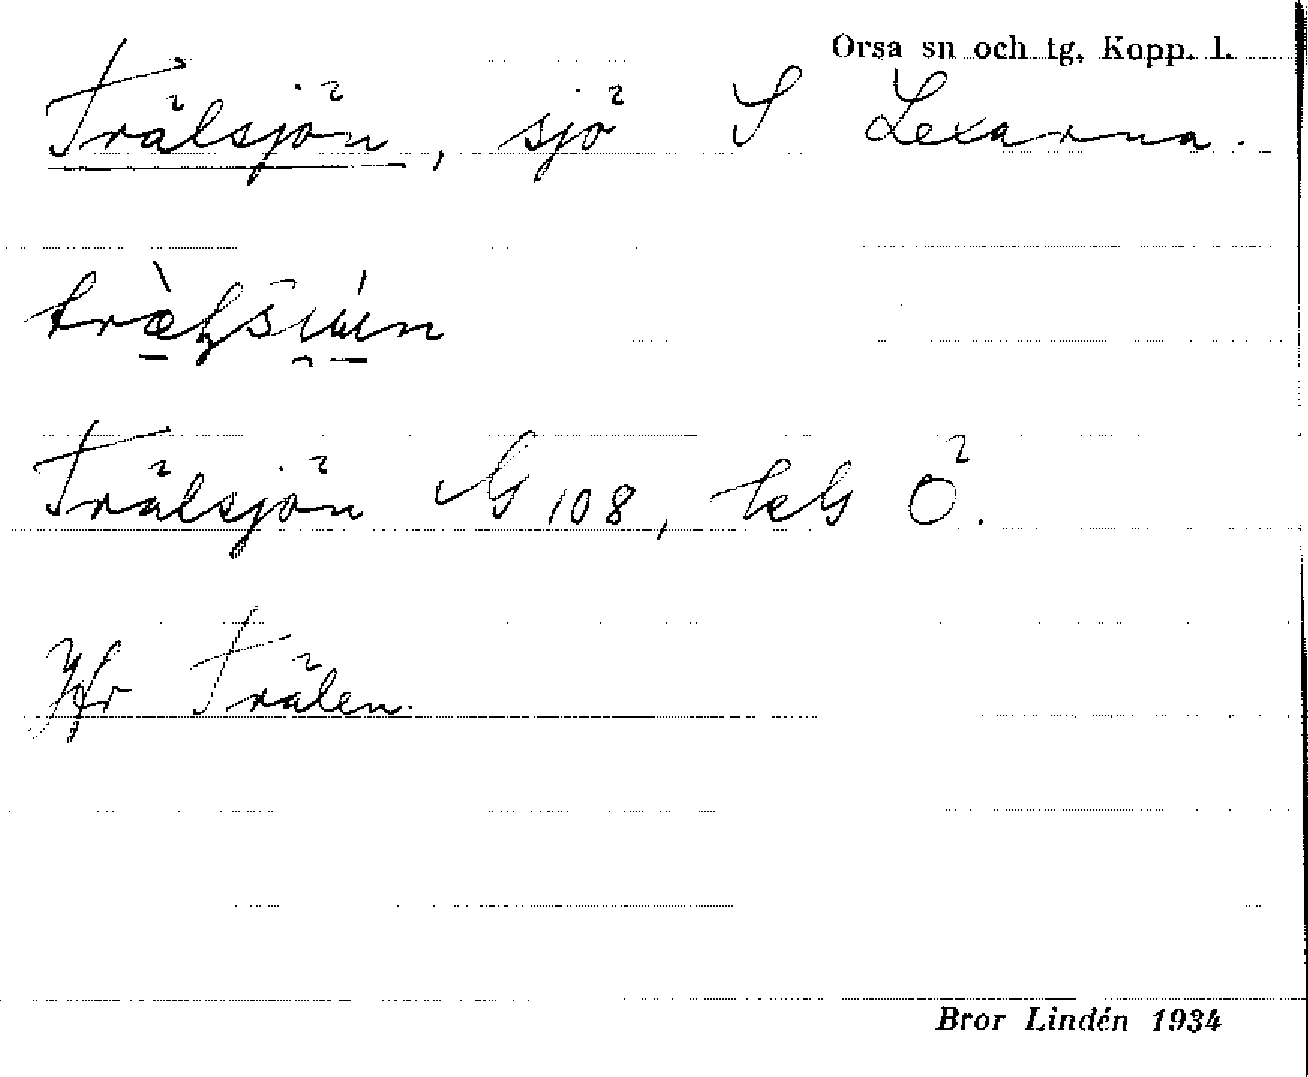 Orsa sn och tg, Kopp. l.
Trälsjön, sjö S Lexarna.
Trälsjön G 108, bl Ö.
Jfr Trälen.
Bror Lindén 1934